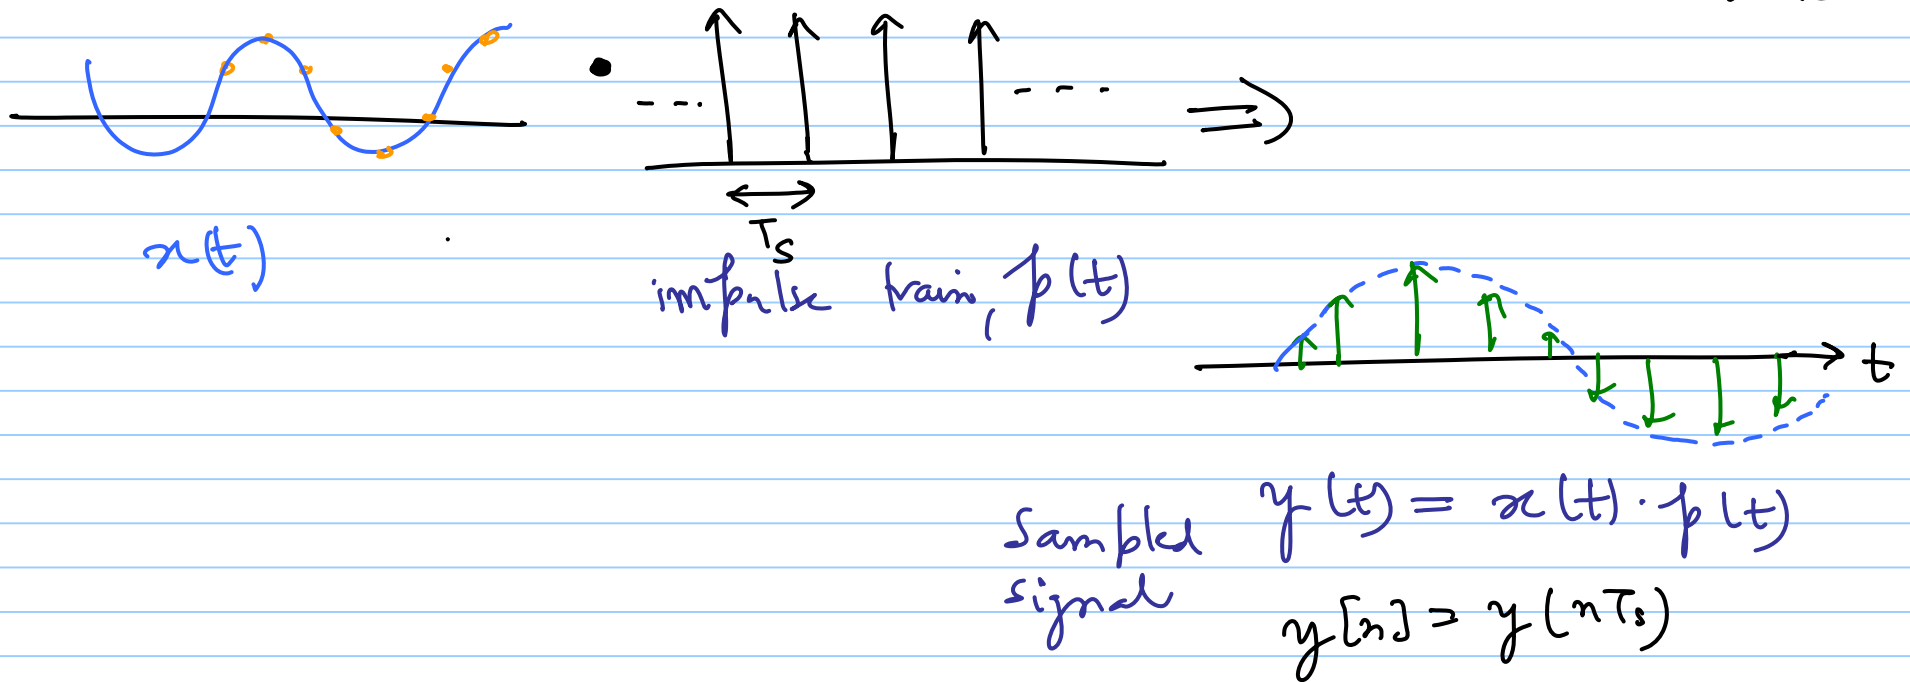 x(t)
Ts
impulse train, p(t)
t
Sampled signal
y(t) = x(t) · p(t)
y[n] = y(nTs)